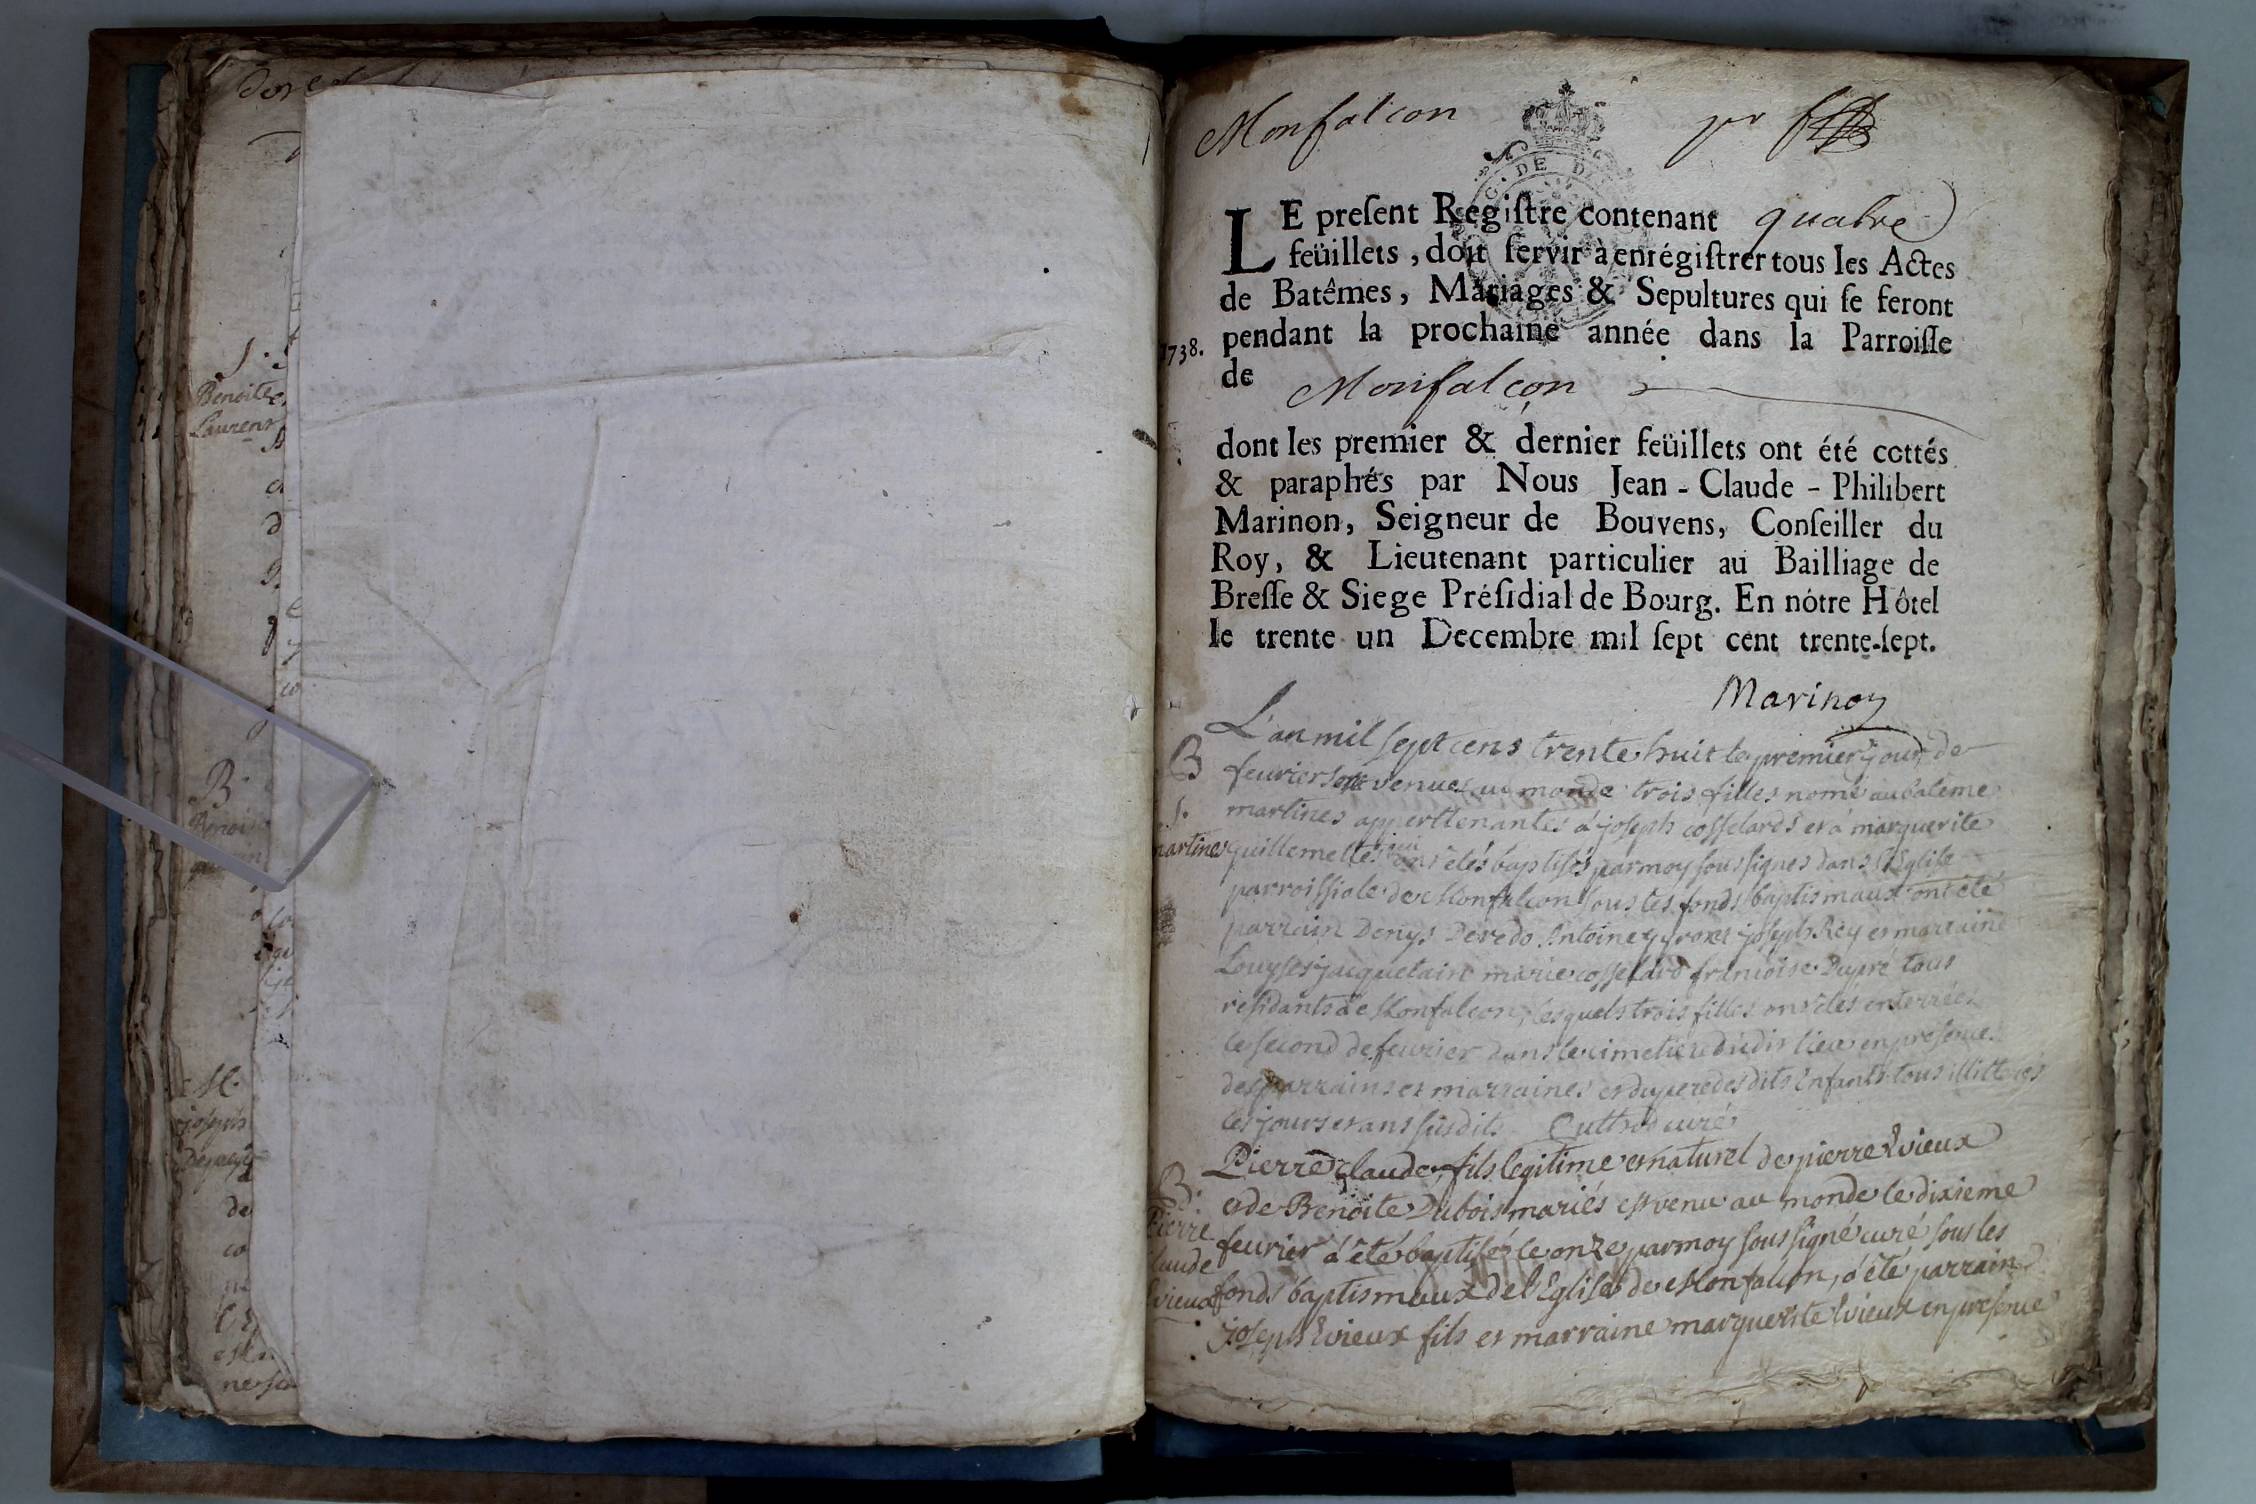 Monfalcon
LE present Registre contenant quatre
feüillets, doit servir à enrégistrer tous les Actes
de Batêmes, Mariáges & Sepultures qui se feront
1738.
pendant la prochaine année dans la Parroisse
de Monfalcon
dont les premier & dernier feüillets ont été cottés
& paraphés par Nous Jean-Claude-Philibert
Marinon, Seigneur de Bouvens, Conseiller du
Roy, & Lieutenant particulier au Bailliage de
Bresse & Siege Présidial de Bourg. En nôtre Hôtel
le trente un Decembre mil sept cent trente-sept.
Marinon
B
S.
martines
L'an mil sept cens trente huit le premier jour de
feurier sont venues au monde trois filles nomé au batéme
martines apperttenantes a joseph cosselard et a marguerite
guillemette qui ont étés baptisés par moy soussignes dans l'Eglise
parroissiale de Monfalcon sous les fonds baptismaux ont été
parrain Denys Deredo Antoine joseph Rey et marraine
Louyse jacquetain marie cosselard francoise Dupré tous
residants de Monfalcon, lesquels trois filles ont étés enterrées
le second de feurier dans le cimetiere dudit lieu en presence
des parrains et marraines et du pere desdits Enfants tous illitterés
les jours et ans susdits curé
B
Pierre
Claude
Evieux
Pierre claude, fils legitime et naturel de pierre Evieux
et de Benoite Dubois mariés est venu au monde le dixieme
feurier a été baptisé le onze par moy soussigné curé sous les
fonds baptismaux de l'Eglise de Monfalcon, a été parrain
joseph Evieux fils et marraine marguerite Evieux en presence
S.
Benoite
Laurent
B.
M.
joseph
de
co